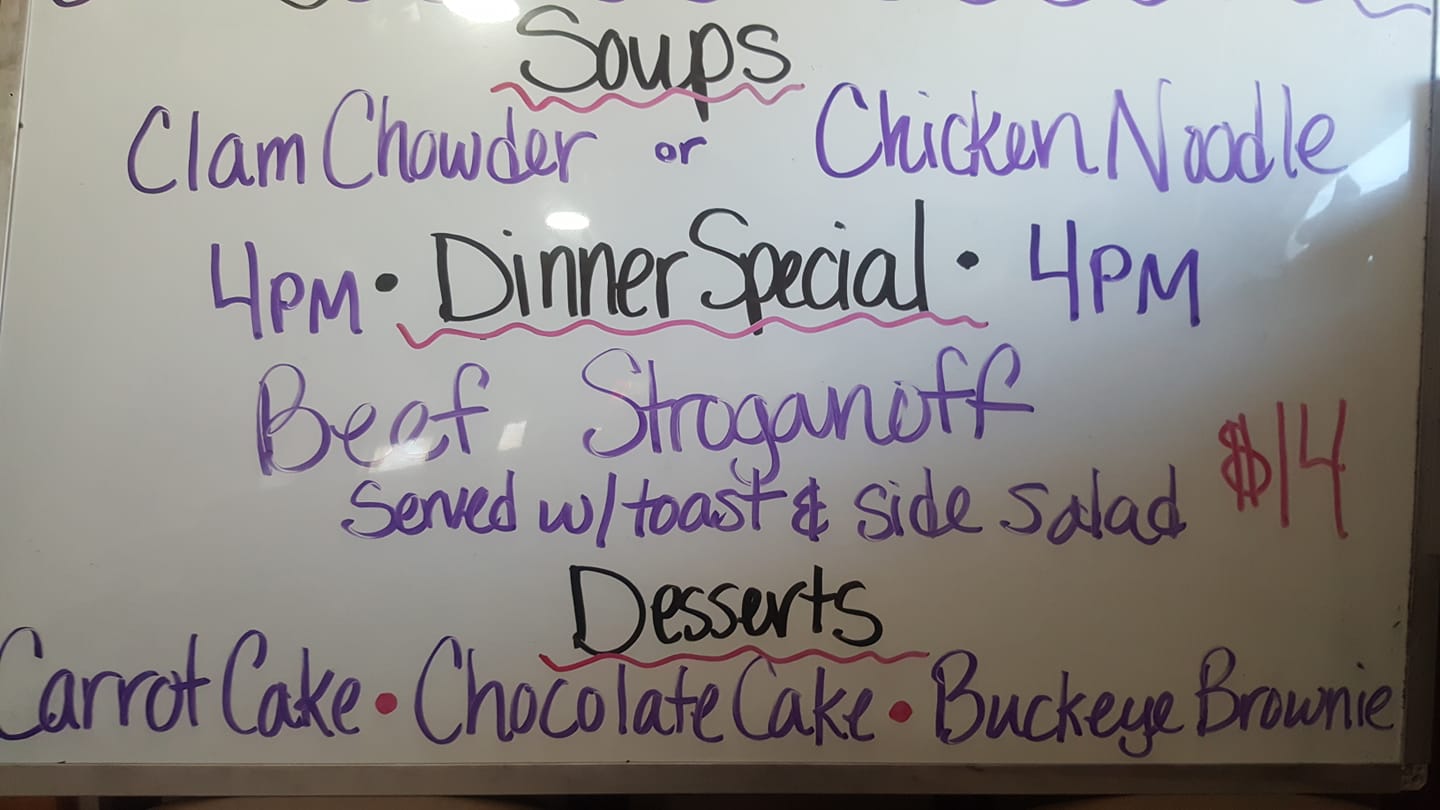 Soups
Clam Chowder or Chicken Noodle
4PM • Dinner Special • 4PM
Beef Stroganoff
Served w/ toast & side salad $14
Desserts
Carrot Cake • Chocolate Cake • Buckeye Brownie